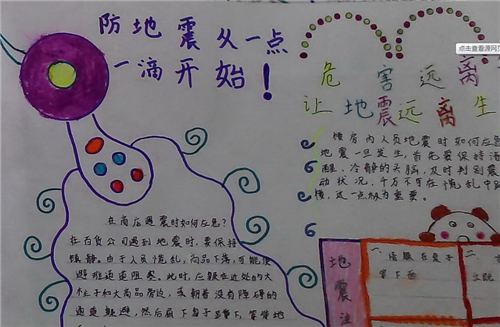 防地震从一点
一滴开始！
危害远离
让地震远离生
点击查看源网页
楼房内人员地震时如何应急?
地震一旦发生，首先要保持清
醒、冷静的头脑，及时判别震
动状况，千万不可在慌乱中跳
楼，这一点极为重要。
在商店遇震时如何应急?
在百货公司遇到地震时，要保持
镇静。由于人员慌乱，商品下落，可能使
避难通道阻塞。此时，应躲在近处的大
柱子和大商品旁边，或朝着没有障碍的
通道躲避，然后屈下身子蹲下，等待地
地震注
一
桌子
下面
二